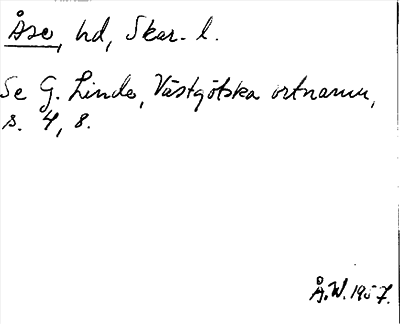 Åse, hd, Skar. l.
Se G. Linde, Västgötska ortnamn,
s. 4, 8.
Å.W. 1957.